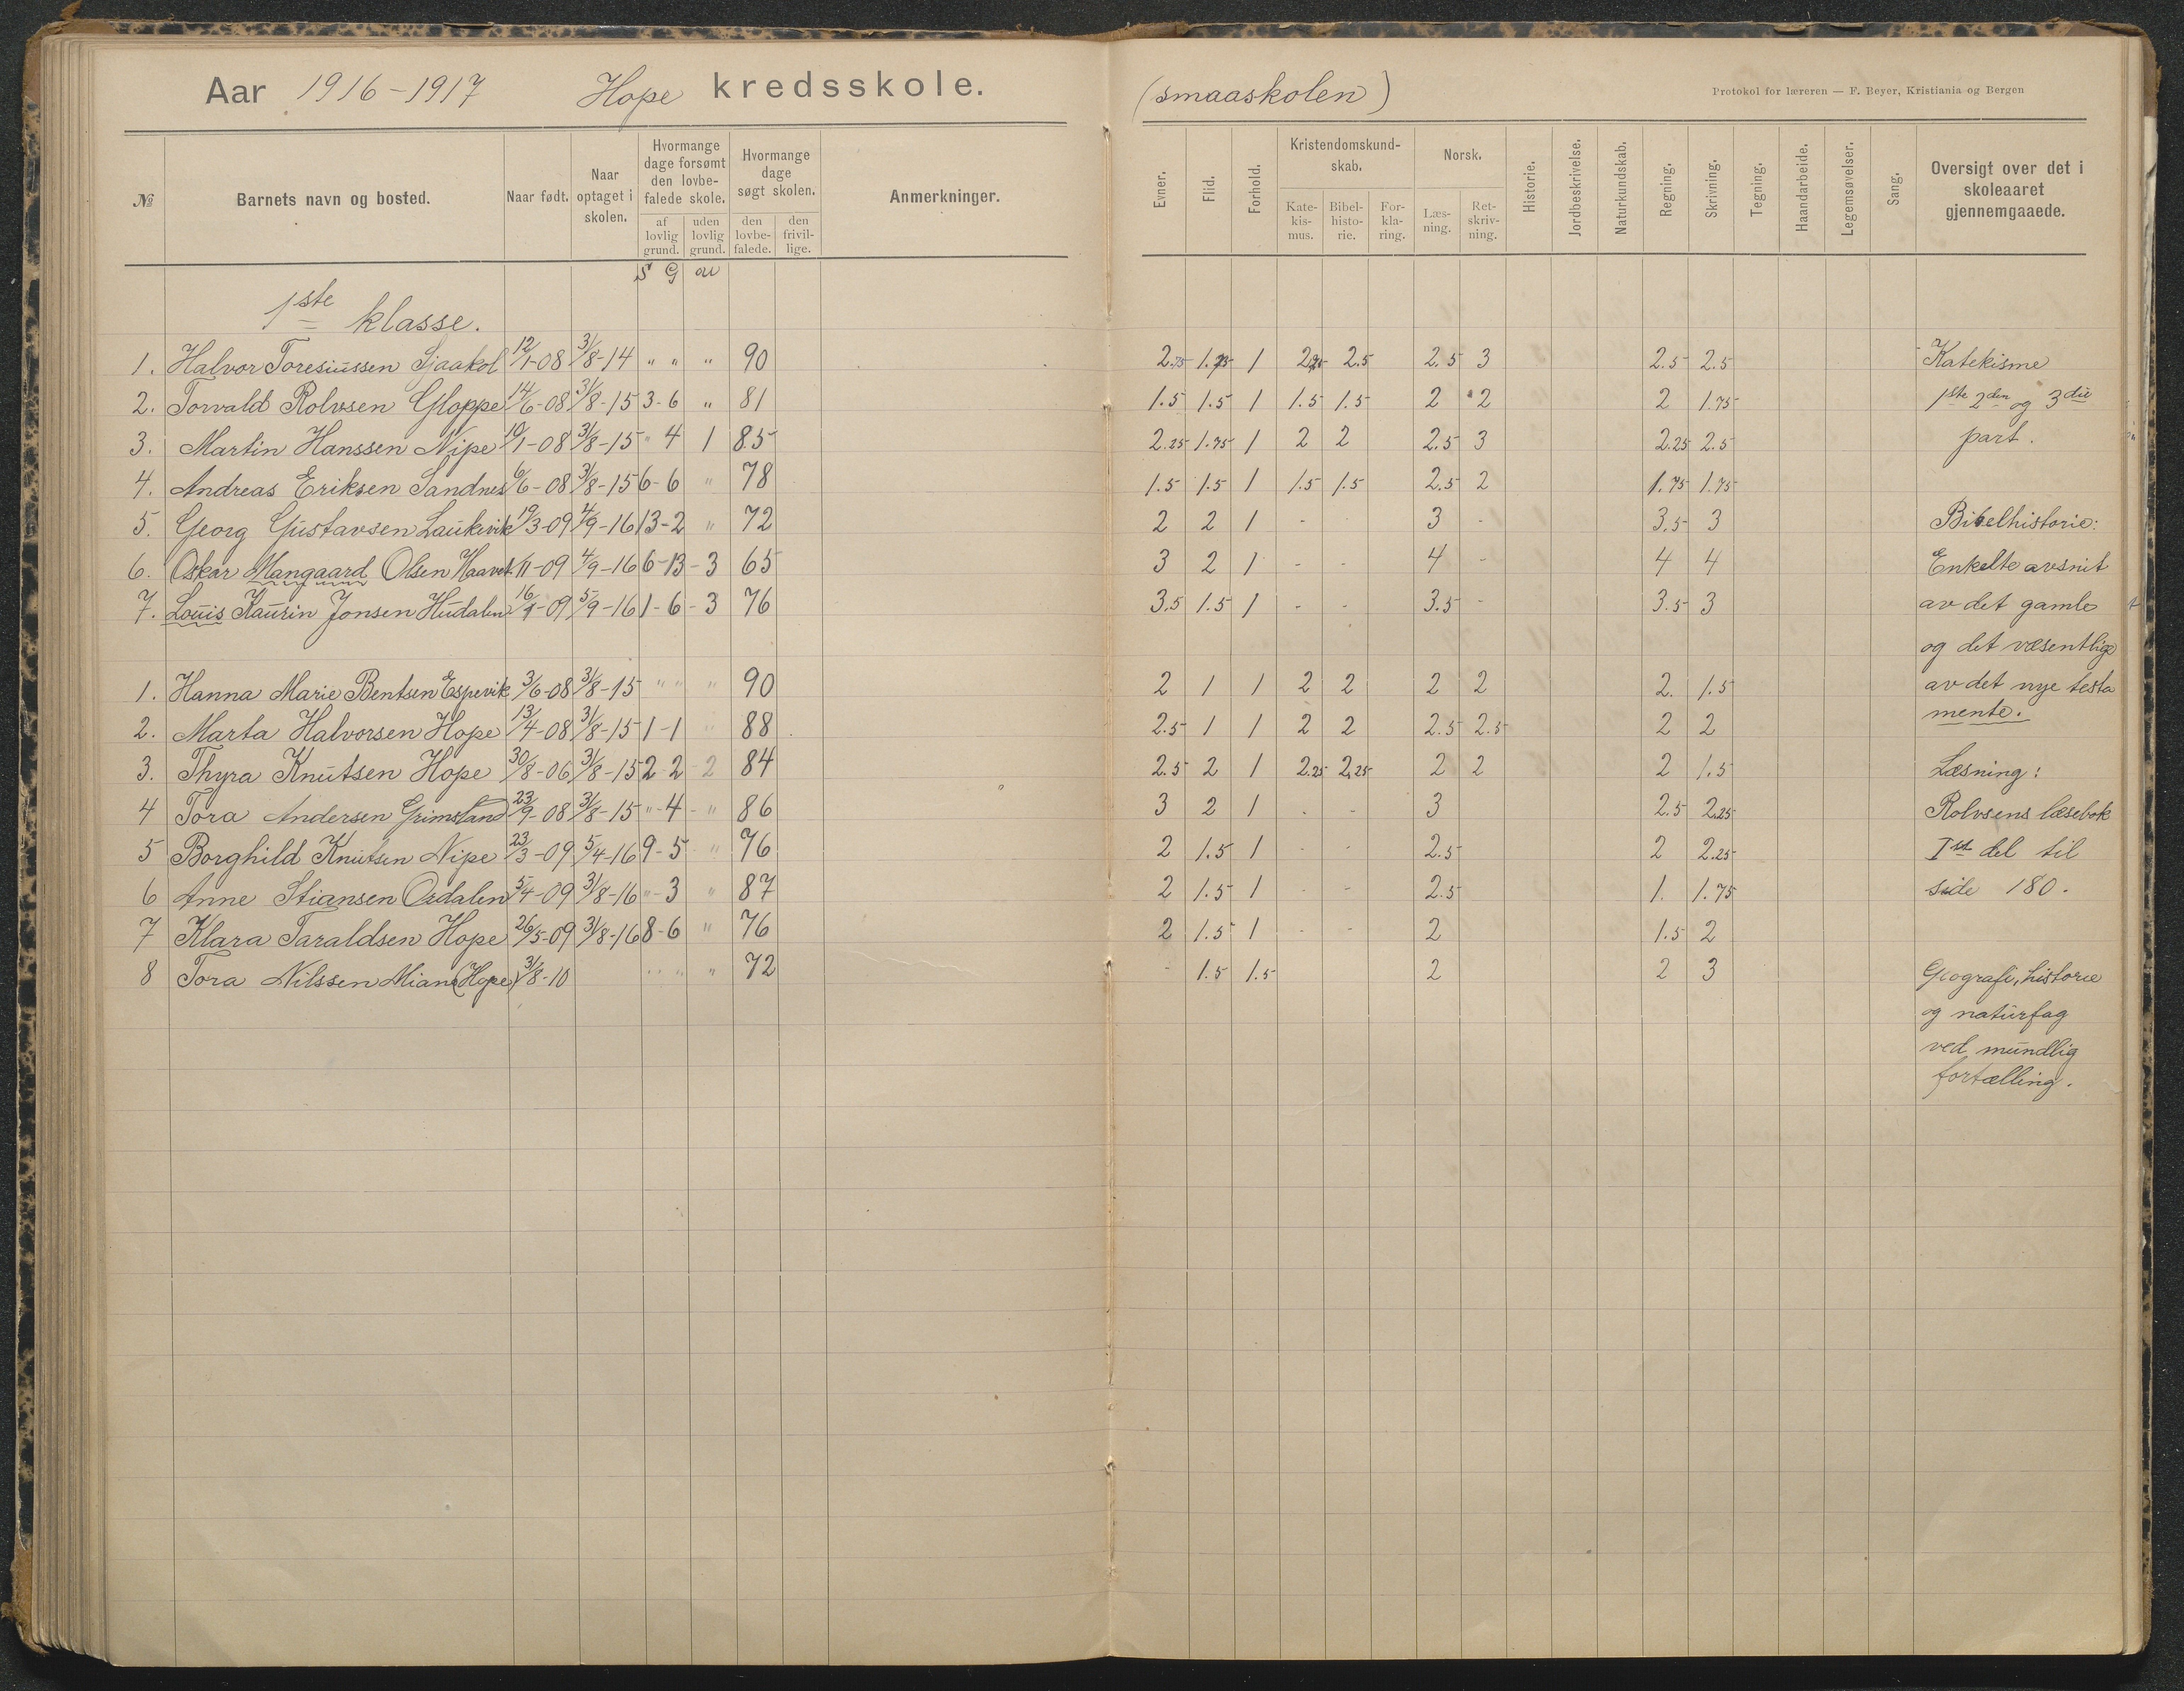 Aar 1916-1917 Hope kredsskole. (smaaskolen)
Protokol for læreren — F. Beyer, Kristiania og Bergen
№ Barnets navn og bosted. Naar født. Naar optaget i skolen. Hvormange dage forsømt den lovbefalede skole. af lovlig grund. uden lovlig grund. Hvormange dage søgt skolen. den lovbefalede. den frivillige. Anmerkninger. Evner. Flid. Forhold. Kristendomskundskab. Katekismus. Bibelhistorie. Forklaring. Norsk. Læsning. Retskrivning. Historie. Jordbeskrivelse. Naturkundskab. Regning. Skrivning. Tegning. Haandarbeide. Legemsøvelser. Sang. Oversigt over det i skoleaaret gjennemgaaede.
S G au
1ste klasse.
1. Halvor Toresiussen Sjaakol 12/1-08 3/8-14 " " " 90 2.75 1.75 1 2.25 2.5 2.5 3 2.5 2.5 Katekisme
2. Torvald Rolvsen Gloppe 14/6-08 31/8-15 3-6 " 81 1.5 1.5 1 1.5 1.5 2 2 2 1.75 1ste 2den og 3die
3. Martin Hanssen Nipe 10/1-08 31/8-15 " 4 1 85 2.25 1.75 1 2 2 2.5 3 2.25 2.5 part.
4. Andreas Eriksen Sandnes 6/6-08 31/8-15 6-6 " 78 1.5 1.5 1 1.5 1.5 2.5 2 1.75 1.75
5. Georg Gustavsen Laukvik 19/3-09 4/9-16 13-2 " 72 2 2 1 - - 3 - 3.5 3 Bibelhistorie:
6. Oskar Mangaard Olsen Haavet 1/11-09 4/9-16 6-13-3 65 3 2 1 - - 4 - 4 4 Enkelte avsnit
7. Louis Kaurin Jonsen Hudalen 16/9-09 5/9-16 1-6-3 76 3.5 1.5 1 - - 3.5 - 3.5 3 av det gamle
og det væsentlige
1. Hanna Marie Bentsen Espevik 3/6-08 3/8-15 " " " 90 2 1 1 2 2 2 2 2. 1.5 av det nye testa
2. Marta Halvorsen Hope 13/4-08 31/8-15 1-1 " 88 2.5 1 1 2 2 2.5 2.5 2 2 mente.
3. Thyra Knutsen Hope 30/8-06 31/8-15 2-2-2 84 2.5 2 1 2.25 2.25 2 2 2 1.5 Læsning:
4 Tora Andersen Grimsland 23/9-08 31/8-15 "-4-" 86 3 2 1 - - 3 2.5 2.25 Rolvsens læsebok
5 Borghild Knutsen Nipe 23/3-09 5/4-16 9-5 " 76 2 1.5 1 - - 2.5 2 2.25 Iste del til
6 Anne Stiansen Ordalen 5/4-09 31/8-16 "-3 " 87 2 1.5 1 - - 2.5 1. 1.75 side 180.
7 Klara Taraldsen Hope 26/5-09 31/8-16 8-6 " 76 2 1.5 1 - - 2 1.5 2
8 Tora Nilssen Miane (Hope) 31/8-10 " " " 72 - 1.5 1.5 2 2 3 Geografi, historie
og naturfag
ved mundlig
fortælling.